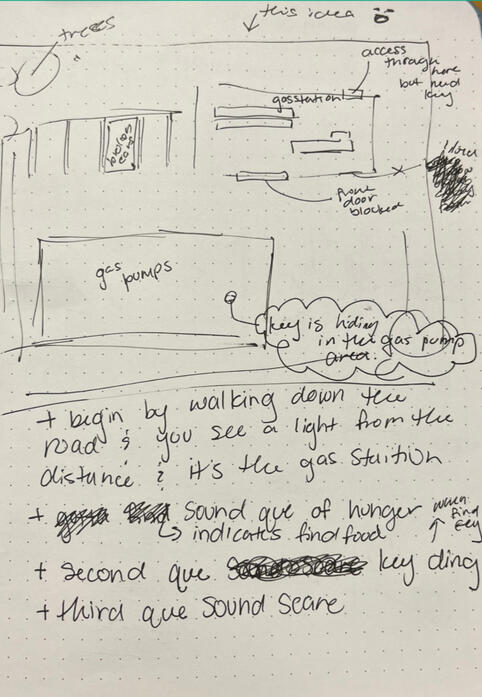 this idea
trees
access
through
here
but need
key
gasstation
front
door
blocked
gas
pumps
key is hiding
in the gas pump
area.
+ begin by walking down the
road & you see a light from the
distance & it's the gas stuition
+ sound que of hunger
when
find
key
↳ indicates find food
+ second que key ding
+ third que sound scare